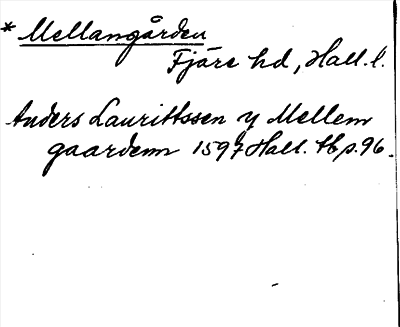 * Mellangården
Fjäre hd, Hall. l.
Anders Laurittssen y Mellem
gaardenn 1597 Hall. tb p. 96.